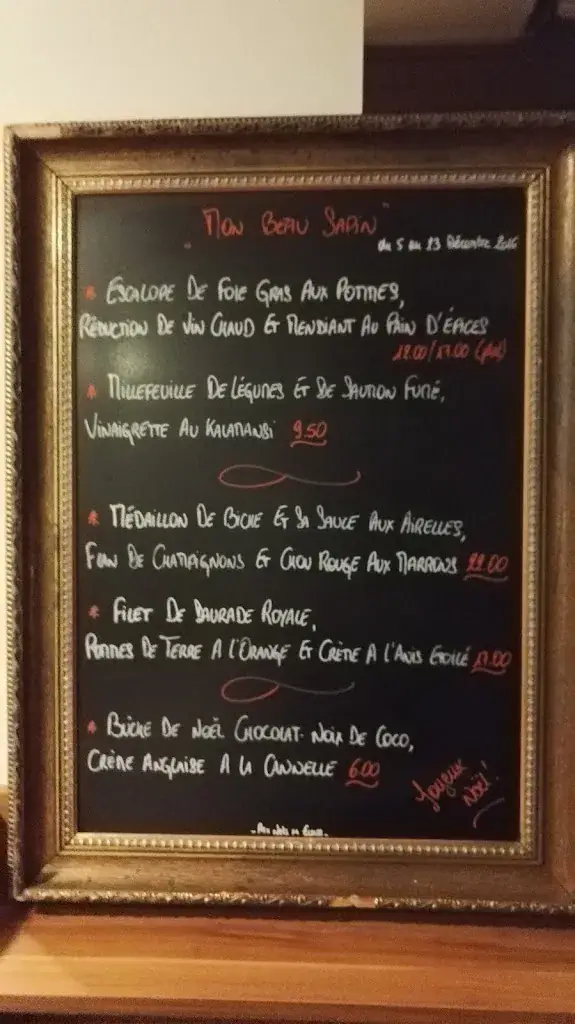 "Mon Beau Sapin"
du 5 au 23 Décembre 2016
* Escalope De Foie Gras Aux Pommes,
Réduction De Vin Chaud Et Mendiant Au Pain D'Épices
12.00/17.00 (plat)
* Millefeuille De Légumes Et De Saumon Fumé,
Vinaigrette Au Kalamansi 9.50
* Médaillon De Biche Et Sa Sauce Aux Airelles,
Flan De Champignons Et Chou Rouge Aux Marrons 22.00
* Filet De Daurade Royale,
Pommes De Terre A l'Orange Et Crème A l'Anis Etoilé 17.00
* Bûche De Noël Chocolat-Noix De Coco,
Crème Anglaise A la Cannelle 6.00
Joyeux
Noël!